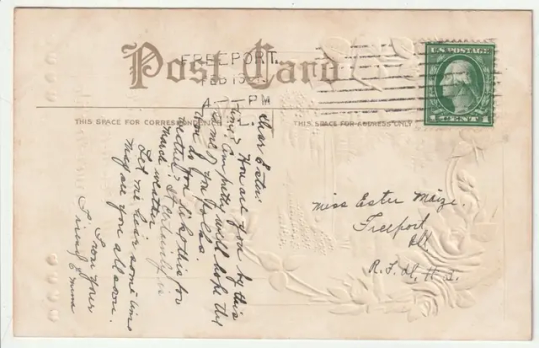 Post Card
FREEPORT.
FEB 13
PM
U.S. POSTAGE
1 CENT 1
THIS SPACE FOR CORRESPONDENCE
THIS SPACE FOR ADDRESS ONLY
Dear Ester:
How are you by this
time? Am pretty well hope the
same of you folks.
How do you like this for
weather? It certainly is
March weather
Let me hear some time
may see you all soon.
From your
Friend Emma
Miss Ester Maize.
Freeport
Ill
R.F.D.